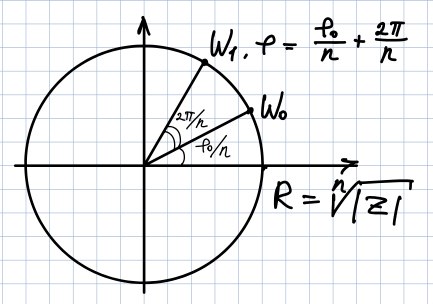 W₁, φ = φ₀/n + 2π/n
W₀
2π/n
φ₀/n
R = ⁿ√|Z|